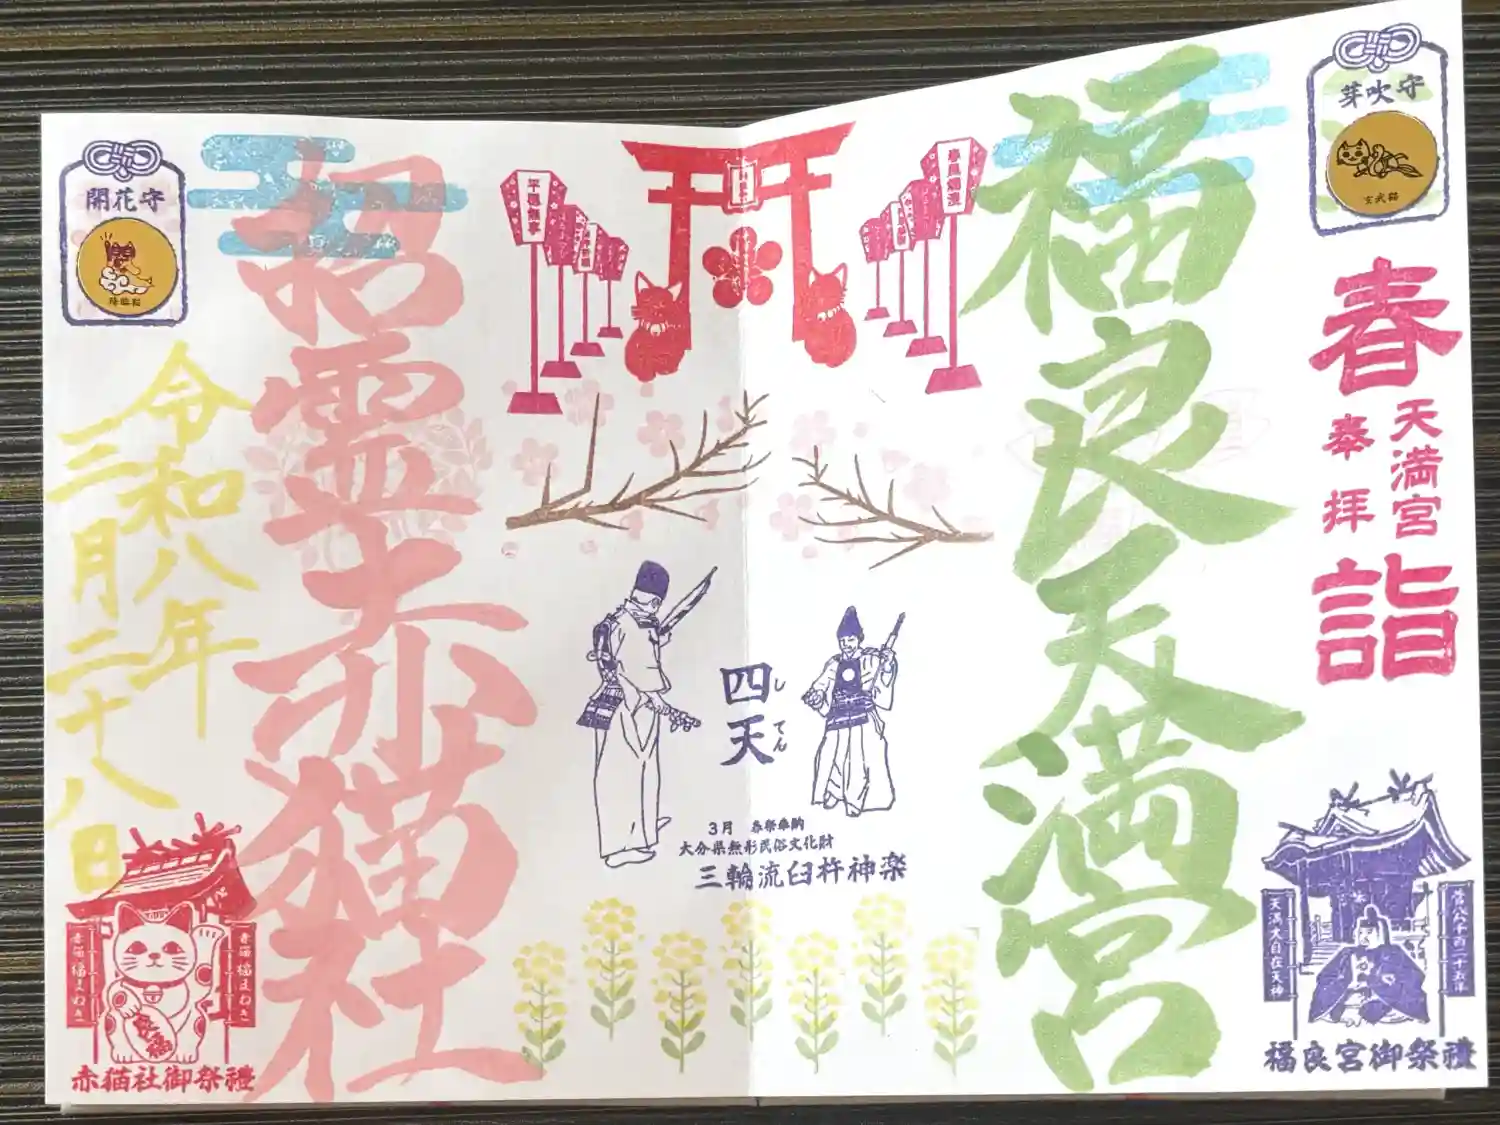 芽吹守
玄武猫
春
天満宮
奉拝
詣
福良天満宮
天満大自在天神
福良宮御祭禮
四天
してん
3月 春祭奉納
大分県無形民俗文化財
三輪流臼杵神楽
平穏無事
開花守
招霊赤猫社
令和八年
三月二十八日
赤猫福まねき
赤猫福まねき
赤猫社御祭禮